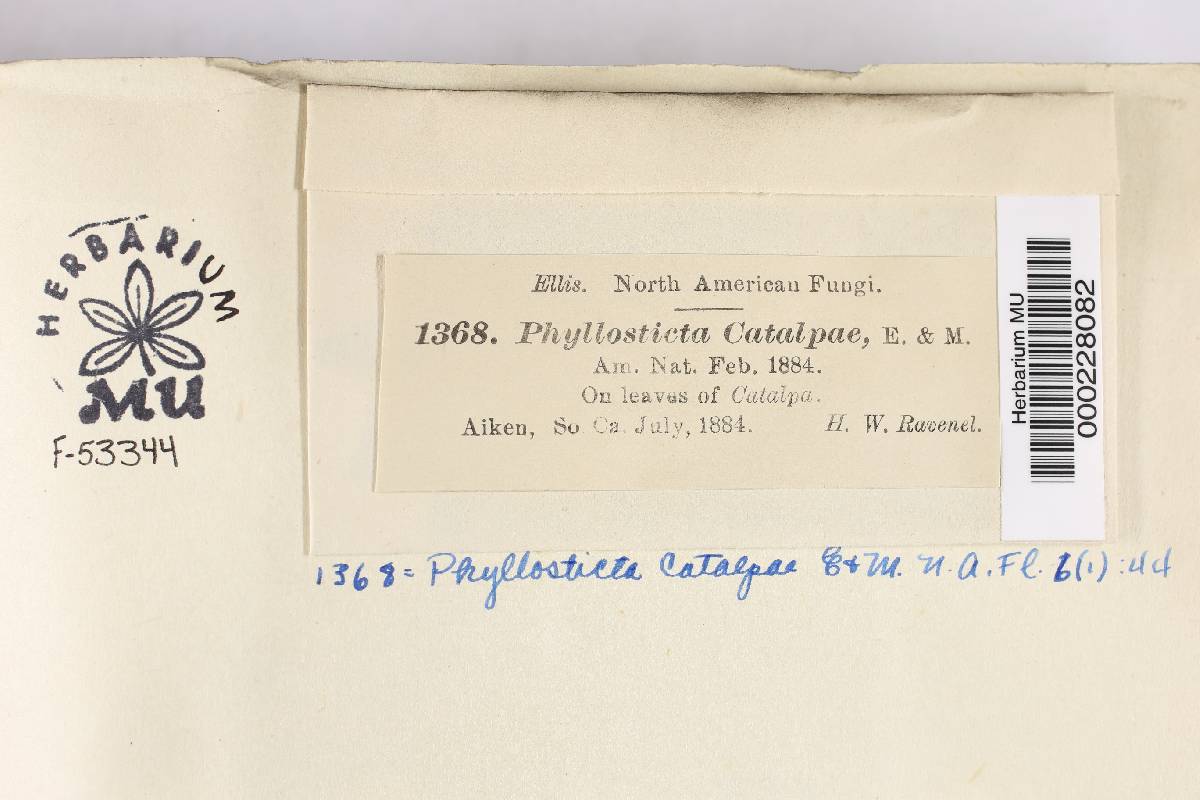 HERBARIUM
MU
F-53344
Ellis. North American Fungi.
1368. Phyllosticta Catalpae, E. & M.
Am. Nat. Feb. 1884.
On leaves of Catalpa.
Aiken, So. Ca. July, 1884. H. W. Ravenel.
Herbarium MU
000228082
1368 = Phyllosticta Catalpae E & M. N. A. Fl. 6(1):44